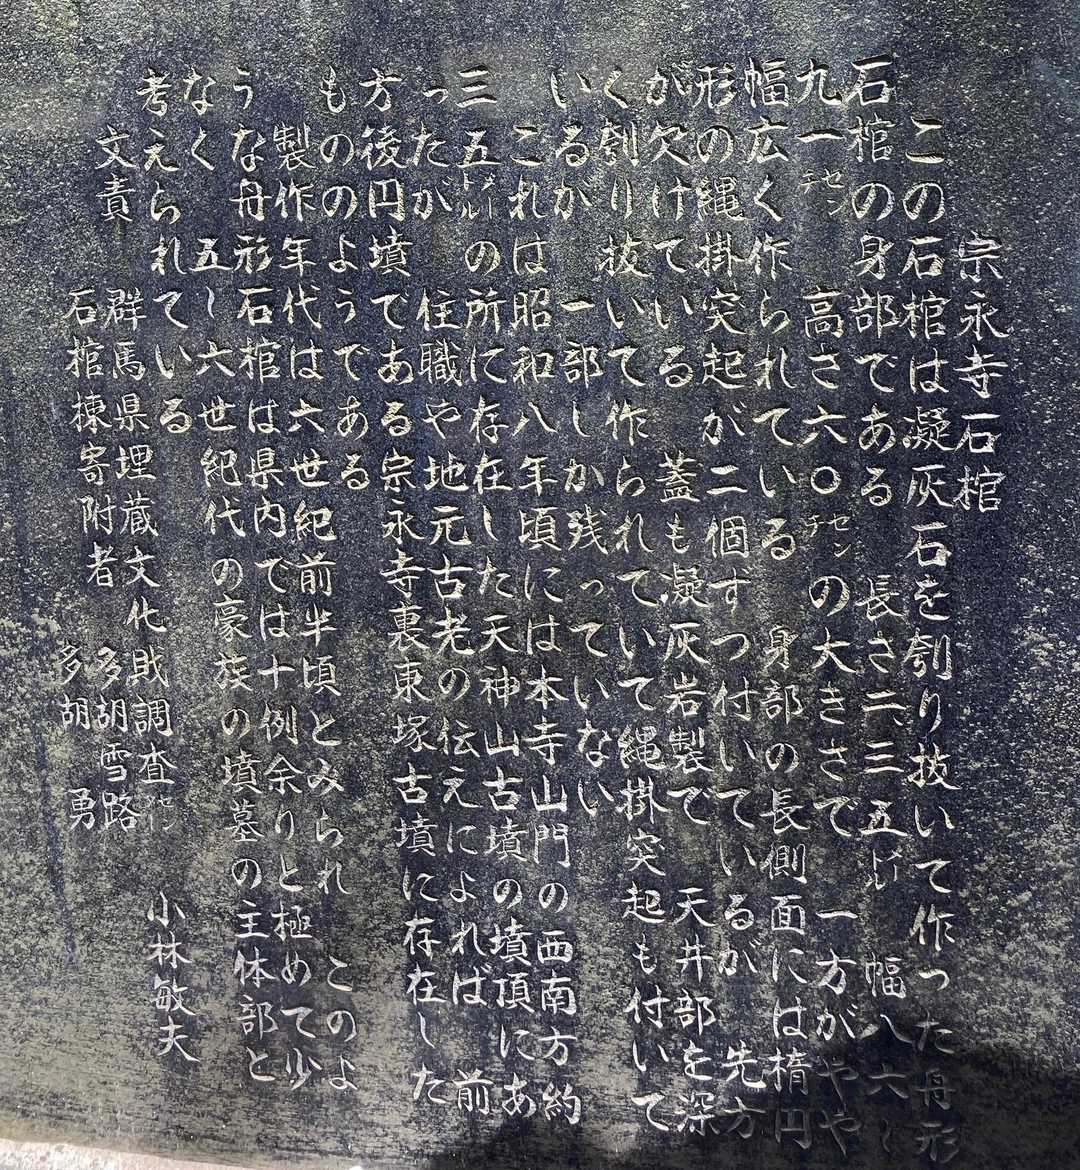 宗永寺石棺
この石棺は凝灰石を刳り抜いて作った舟形
石棺の身部である 長さ二、三五メートル 幅八六〜
九一センチ 高さ六〇センチの大きさで 一方がやや
幅広く作られている 身部の長側面には楕円
形の縄掛突起が二個ずつ付いているが 先方
が欠けている 蓋も凝灰岩製で 天井部を深
く刳り抜いて作られていて縄掛突起も付いて
いるが 一部しか残っていない
これは昭和八年頃には本寺山門の西南方約
三五メートルの所に存在した天神山古墳の墳頂にあ
ったが 住職や地元古老の伝えによれば 前
方後円墳である宗永寺裏東塚古墳に存在した
もののようである
製作年代は六世紀前半頃とみられ このよ
うな舟形石棺は県内では十例余りと極めて少
なく 五〜六世紀代の豪族の墳墓の主体部と
考えられている
文責 群馬県埋蔵文化財調査センター 小林敏夫
石棺棟寄附者 多胡雪路
多胡 勇